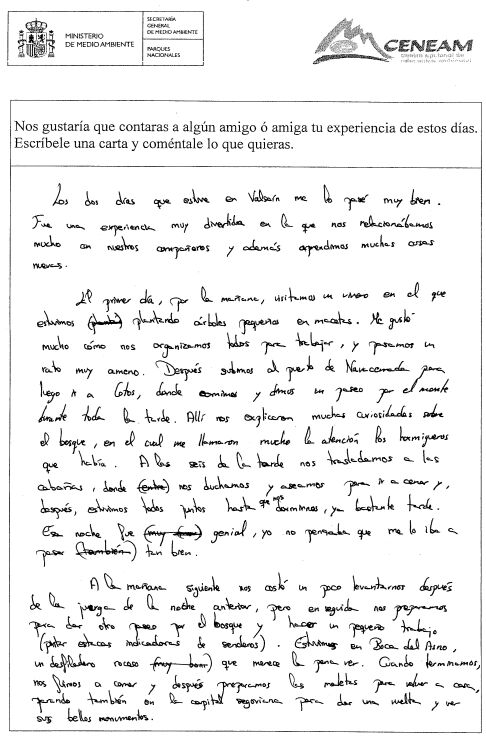 MINISTERIO
DE MEDIO AMBIENTE
SECRETARÍA
GENERAL
DE MEDIO AMBIENTE
PARQUES
NACIONALES
CENEAM
Nos gustaría que contaras a algún amigo ó amiga tu experiencia de estos días.
Escríbele una carta y coméntale lo que quieras.
Los dos días que estuve en Valsaín me lo pasé muy bien.
Fue una experiencia muy divertida en la que nos relacionábamos
mucho con nuestros compañeros y además aprendimos muchas cosas
nuevas.
El primer día, por la mañana, visitamos un vivero en el que
estuvimos (planta) plantando árboles pequeños en macetas. Me gustó
mucho cómo nos organizamos todos para trabajar, y pasamos un
rato muy ameno. Después subimos al puerto de Navacerrada para
luego ir a Cotos, donde comimos y dimos un paseo por el monte
durante toda la tarde. Allí nos explicaron muchas curiosidades sobre
el bosque, en el cual me llamaron mucho la atención los hormigueros
que había. A las seis de la tarde nos trasladamos a las
cabañas, donde (entre) nos duchamos y aseamos para ir a cenar y,
después, estuvimos todos juntos hasta que nos dormimos, ya bastante tarde.
Esa noche fue (muy) genial, yo no pensaba que me lo iba a
pasar (también) tan bien.
A la mañana siguiente nos costó un poco levantarnos después
de la juerga de la noche anterior, pero en seguida nos preparamos
para dar otro paseo por el bosque y hacer un pequeño trabajo
(pintar estacas indicadoras de senderos). Estuvimos en Boca del Asno,
un desfiladero rocoso (muy bon) que merece la pena ver. Cuando terminamos,
nos fuimos a comer y después preparamos las maletas para volver a casa,
parando también en la capital segoviana para dar una vuelta y ver
sus bellos monumentos.